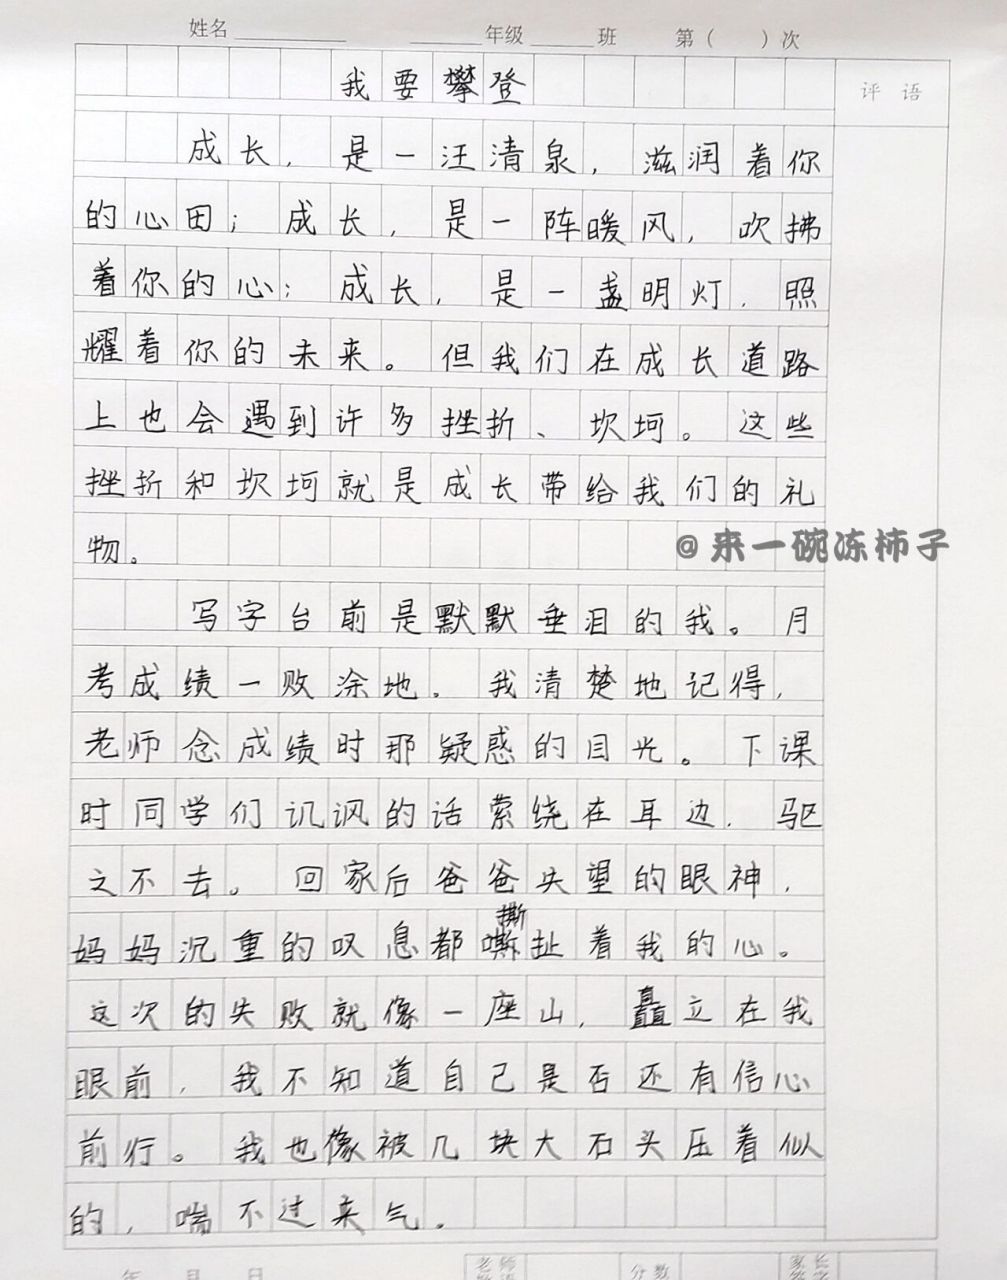 姓名 年级 班 第( )次
我要攀登
评语
成长，是一汪清泉，滋润着你
的心田；成长，是一阵暖风，吹拂
着你的心；成长，是一盏明灯，照
耀着你的未来。但我们在成长道路
上也会遇到许多挫折、坎坷。这些
挫折和坎坷就是成长带给我们的礼
物。
@来一碗冻柿子
写字台前是默默垂泪的我。月
考成绩一败涂地。我清楚地记得，
老师念成绩时那疑惑的目光。下课
时同学们讥讽的话萦绕在耳边，驱
之不去。回家后爸爸失望的眼神，
撕
妈妈沉重的叹息都嘶扯着我的心。
这次的失败就像一座山，矗立在我
眼前，我不知道自己是否还有信心
前行。我也像被几块大石头压着似
的，喘不过来气。
年 月 日 老师 分数 家长